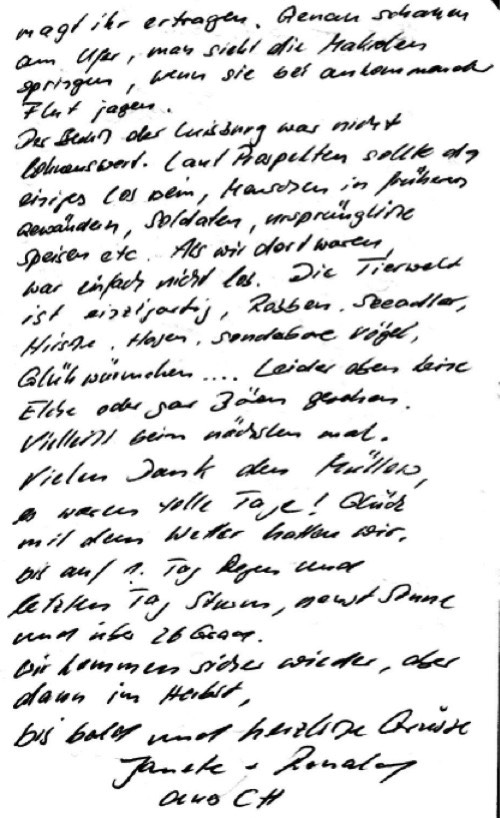 magt ihr ertragen. Genau schauen
am Ufer, man sieht die Makrelen
springen, wenn sie bei ankommender
Flut jagen.
Der Besuch der Luisburg war nicht
lohnenswert. Laut Prospekten sollte da
einiges los sein, Menschen in früheren
Gewändern, Soldaten, ursprüngliche
Speisen etc. Als wir dort waren,
war einfach nichts los. Die Tierwelt
ist einzigartig, Robben, Seeadler,
Hirsche, Hasen, sonderbare Vögel,
Glühwürmchen.... Leider aber keine
Elche oder gar Bären gesehen.
Vielleicht beim nächsten mal.
Vielen Dank den Müllers,
es waren tolle Tage! Glück
mit dem Wetter hatten wir,
bis auf 1. Tag Regen und
letzten Tag Sturm, sonst Sonne
und über 26 Grad.
Wir kommen sicher wieder, aber
dann im Herbst,
bis bald und herzliche Grüsse
Janete + Ronald
aus CH